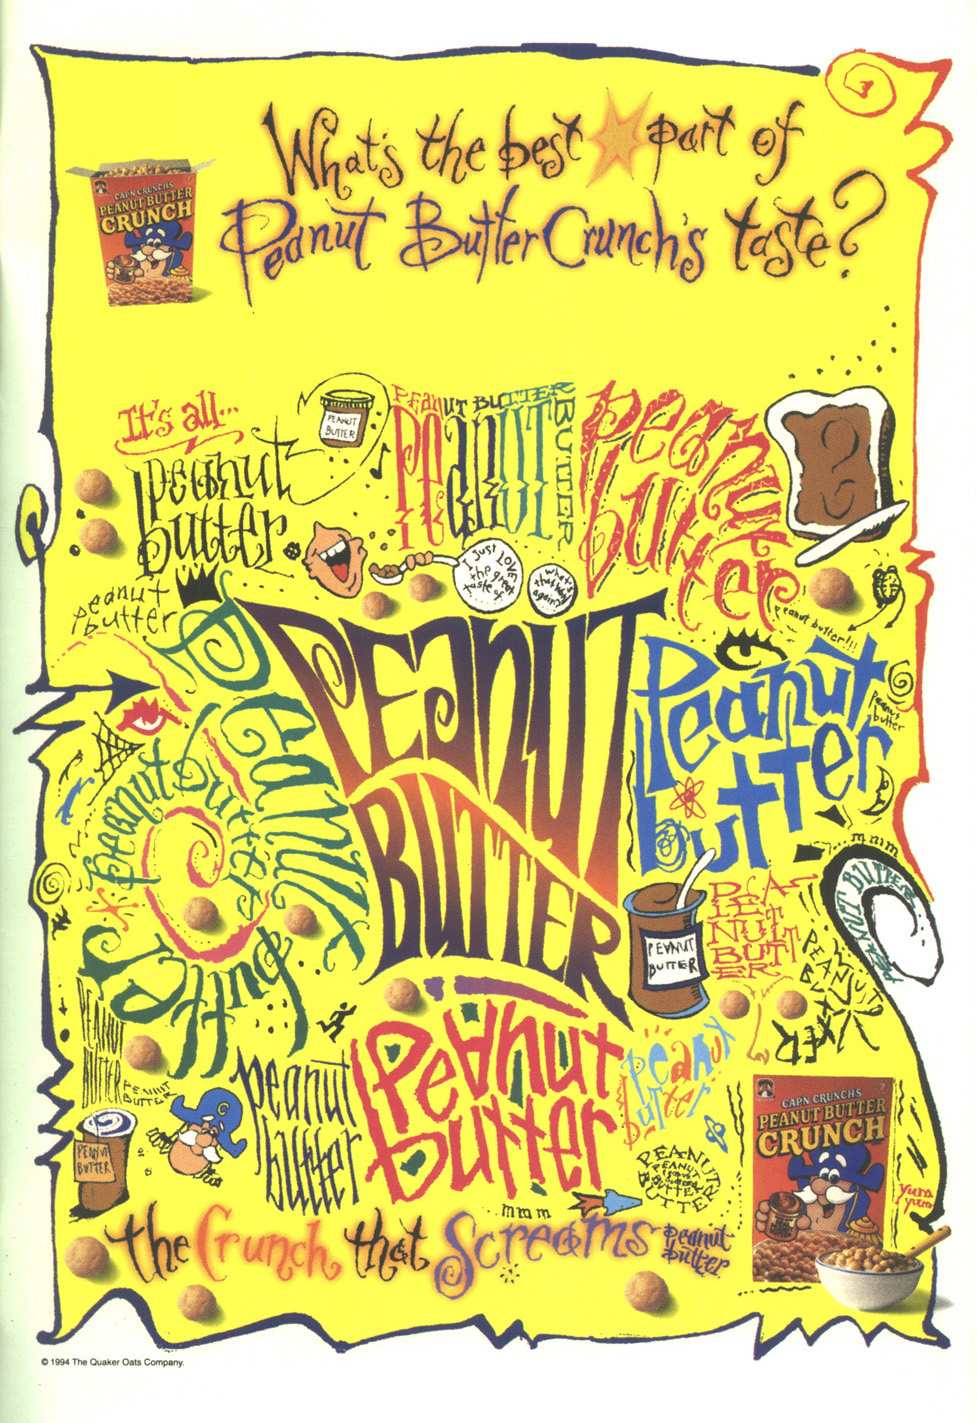 What's the best part of
Peanut Butter Crunch's taste?
CAP'N CRUNCH'S
PEANUT BUTTER
CRUNCH
It's all...
peanut
butter
PEANUT
BUTTER
PEANUT BUTTER
PEANUT
BUTTER
peanut
butter
I just LOVE
the great
taste of
what's
that
again?
peanut
butter
peanut butter!!!
Peanut
butter
PEANUT
BUTTER
Peanut
butter
peanut
butter
peanut butter
mmm
PEANUT BUTTER
PEANUT
BUTTER
PEA-
NUT
BUTT
ER
PEANUT
BUTTER
PEANUT
BUTTER
PEANUT
BUTTER
PEANUT
BUTTER
peanut
butter
Peanut
butter
Peanut
butter
PEANUT
BUTTER
CAP'N CRUNCH'S
PEANUT BUTTER
CRUNCH
yum
yum
mmm
the Crunch that Screams peanut
butter
© 1994 The Quaker Oats Company.